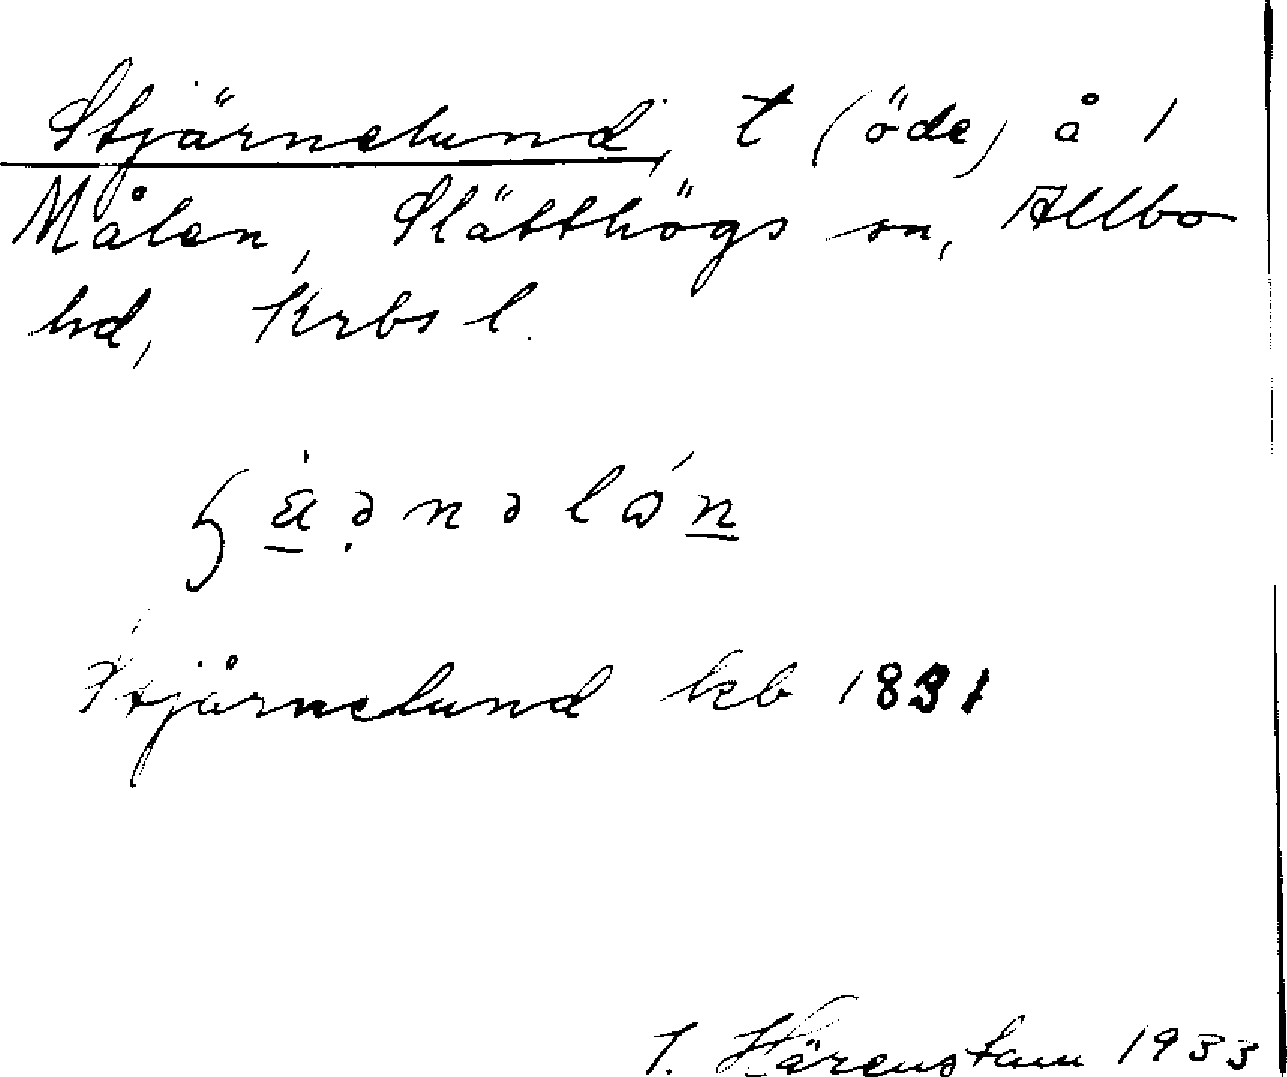 Stjärnelund, t (öde) å 1
Målen, Slätthögs sn, Allbo
hd, Krbs l.
Stjärnelund kb 1831
J. Härenstam 1933